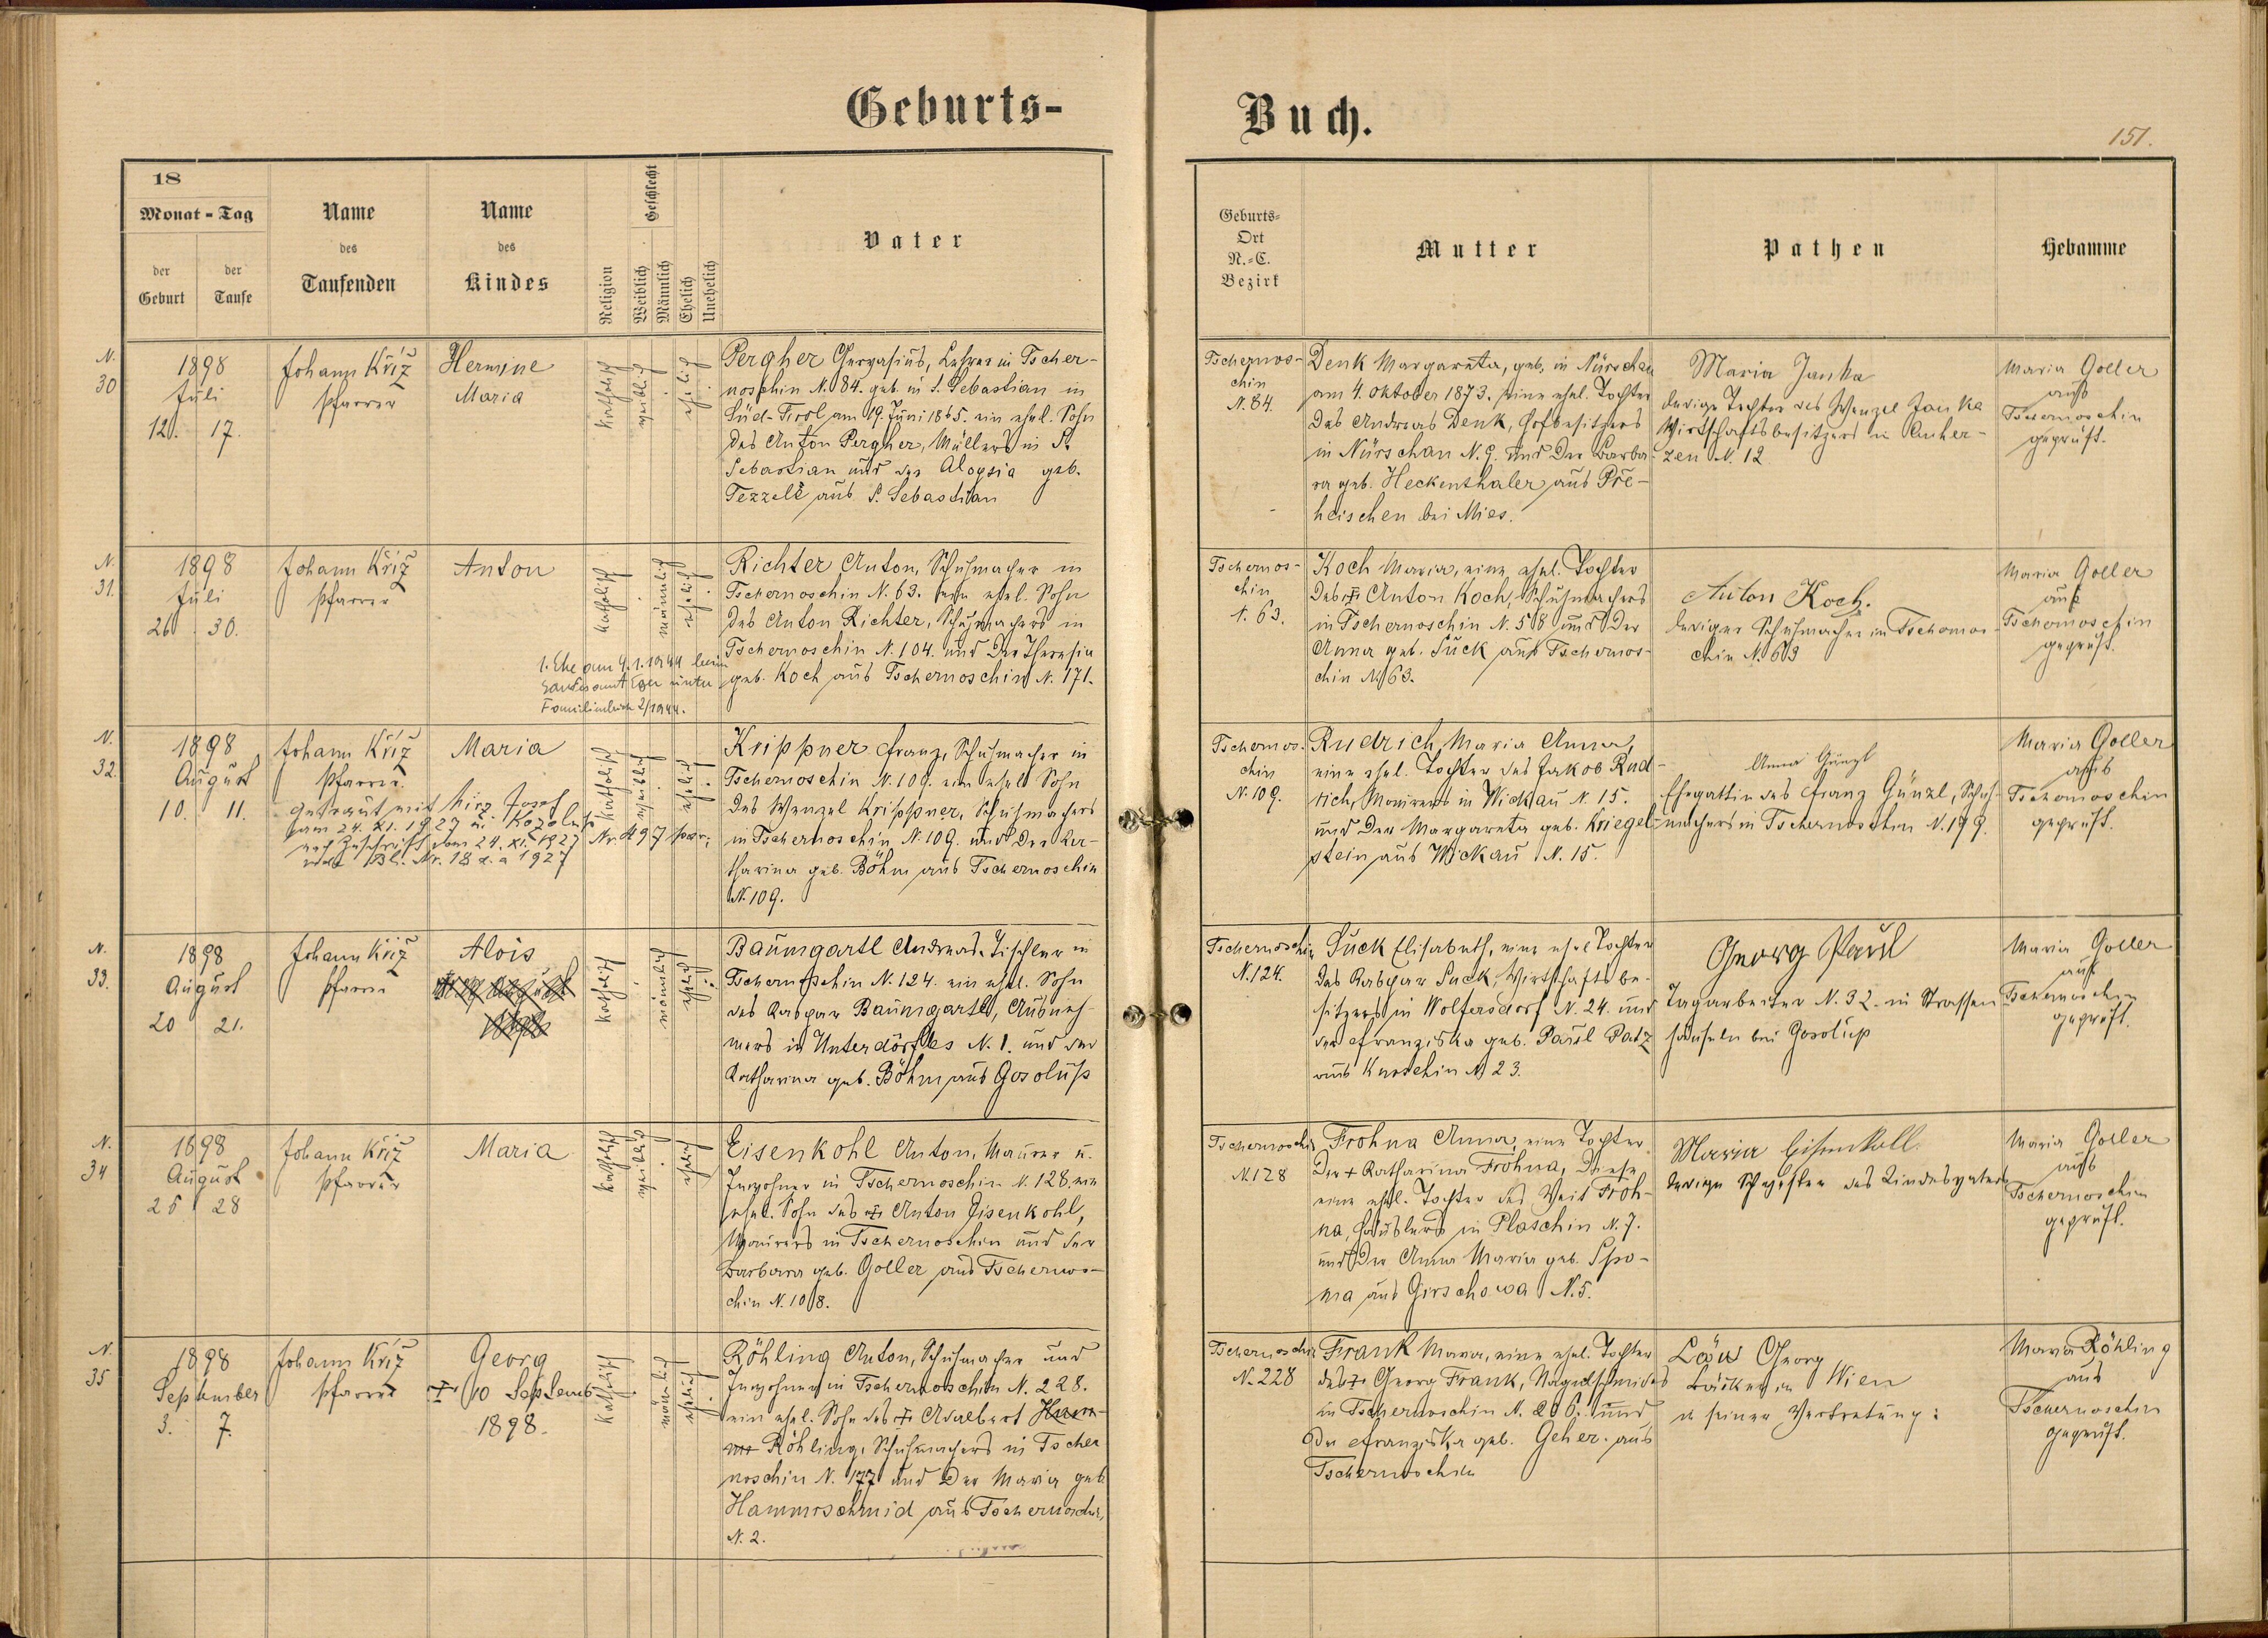 Geburts-
Buch.
151.
18
Monat - Tag
der
Geburt
der
Taufe
Name
des
Taufenden
Name
des
Kindes
Religion
Geschlecht
Weiblich
Männlich
Ehelich
Unehelich
Vater
Geburts-
Ort
N.-C.
Bezirk
Mutter
Pathen
Hebamme
N.
30
1898
Juli
12. 17.
Johann Kříž
Pfarrer
Hermine
Maria
katholisch
weiblich
ehelich
Pergher Gervasius, Lehrer in Tscher-
noschin N. 84. geb. in S. Sebastian in
Süd-Tirol am 19. Juni 1865. ein ehel. Sohn
des Anton Pergher, Müllers in S.
Sebastian und der Aloysia geb.
Tezzele aus S. Sebastian
Tschernos-
chin
N. 84.
Denk Margareta, geb. in Nürschan
am 4. Oktober 1873. eine ehel. Tochter
des Andreas Denk, Hofbesitzers
in Nürschan N. 9. und der Barba-
ra geb. Heckenthaler aus Pře-
heischen bei Mies.
Maria Janka
ledige Tochter des Wenzel Janka
Wirtschaftsbesitzers in Auher-
zen N. 12
Maria Goller
aus
Tschernoschin
geprüft.
N.
31.
1898
Juli
26 30.
Johann Kříž
Pfarrer
Anton
katholisch
männlich
ehelich
1. Ehe am 4.1.1944 beim
Standesamt Eger unter
Familienbuch 2/1944.
Richter Anton, Schuhmacher in
Tschernoschin N. 63. ein ehel. Sohn
des Anton Richter, Schuhmachers in
Tschernoschin N. 104. und der Theresia
geb. Koch aus Tschernoschin N. 171.
Tschernos-
chin
N. 63.
Koch Maria, eine ehel. Tochter
des † Anton Koch, Schuhmachers
in Tschernoschin N. 58 und der
Anna geb. Suck aus Tschernos-
chin N. 63.
Anton Koch.
lediger Schuhmacher in Tschernos-
chin N. 63
Maria Goller
aus
Tschernoschin
geprüft.
N.
32.
1898
August
10. 11.
Johann Kříž
Pfarrer.
Maria
katholisch
weiblich
ehelich
getraut mit Josef
am 24. XI. 1927 in Kozolup
nach Zuschrift vom 24. XI. 1927 Nr. 497 par.
Bl. Nr. 18 d. a 1927
Krippner Franz, Schuhmacher in
Tschernoschin N. 109. ein ehel. Sohn
des Wenzel Krippner, Schuhmachers
in Tschernoschin N. 109. und der Ka-
tharina geb. Böhm aus Tschernoschin
N. 109.
Tschernos-
chin
N. 109.
Rudrich, Maria Anna,
eine ehel. Tochter des Jakob Rud-
rich, Maurers in Wickau N. 15.
und der Margareta geb. Kriegel-
stein aus Wickau N. 15.
Anna Günzl
Ehegattin des Franz Günzl, Schuh-
machers in Tschernoschin N. 199.
Maria Goller
aus
Tschernoschin
geprüft.
N.
33.
1898
August
20 21.
Johann Kříž
Pfarrer
Alois
katholisch
männlich
ehelich
Baumgartl Andreas, Tischler in
Tschernoschin N. 124. ein ehel. Sohn
des Kaspar Baumgartl, Ausneh-
mers in Unterdörfles N. 1. und der
Katharina geb. Böhm aus Gosolup
Tschernoschin
N. 124.
Suck Elisabeth, eine ehel. Tochter
des Kaspar Suck, Wirtschaftsbe-
sitzers in Wolfersdorf N. 24. und
der Franziska geb. Paul
aus Kuroschin N. 23.
Georg Paul
Tagarbeiter N. 32. in Strassen
häuseln bei Gosolup
Maria Goller
aus
Tschernoschin
geprüft.
N.
34
1898
August
25 28
Johann Kříž
Pfarrer
Maria
katholisch
weiblich
ehelich
Eisenkohl Anton, Maurer u.
Inwohner in Tschernoschin N. 128. ein
ehel. Sohn des † Anton Eisenkohl,
Maurers in Tschernoschin und der
Barbara geb. Goller aus Tscherno-
chin N. 108.
Tschernoschin
N. 128
Frohna Anna, eine Tochter
der † Katharina Frohna, diese
eine ehel. Tochter des Veit Froh-
na, Häuslers in Plaschin N. 7.
und der Anna Maria geb. Spo-
na aus Girschowa N. 5.
Maria Eisenkoll
ledige Schwester des Kindesvaters
Maria Goller
aus
Tschernoschin
geprüft.
N.
35
1898
September
3. 7.
Johann Kříž
Pfarrer
Georg
† 10 Septemb
1898.
katholisch
männlich
ehelich
Röhling Anton, Schuhmacher und
Inwohner in Tschernoschin N. 228.
ein ehel. Sohn des † Adalbert
Röhling, Schuhmachers in Tscher
noschin N. 177 und der Maria geb
Hammrschmid aus Tschernoschin,
N. 2.
Tschernoschin
N. 228
Frank Maria, eine ehel. Tochter
des † Georg Frank, Nagelschmides
in Tschernoschin N. 206. und
der Franziska geb. Geher. aus
Tschernoschin
Löw Georg
Bäcker in Wien
in seiner Vertretung:
Maria Röhling
aus
Tschernoschin
geprüft.